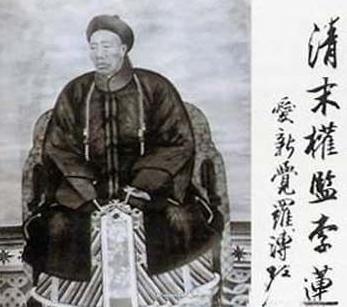 清末權監李蓮
愛新覺羅溥